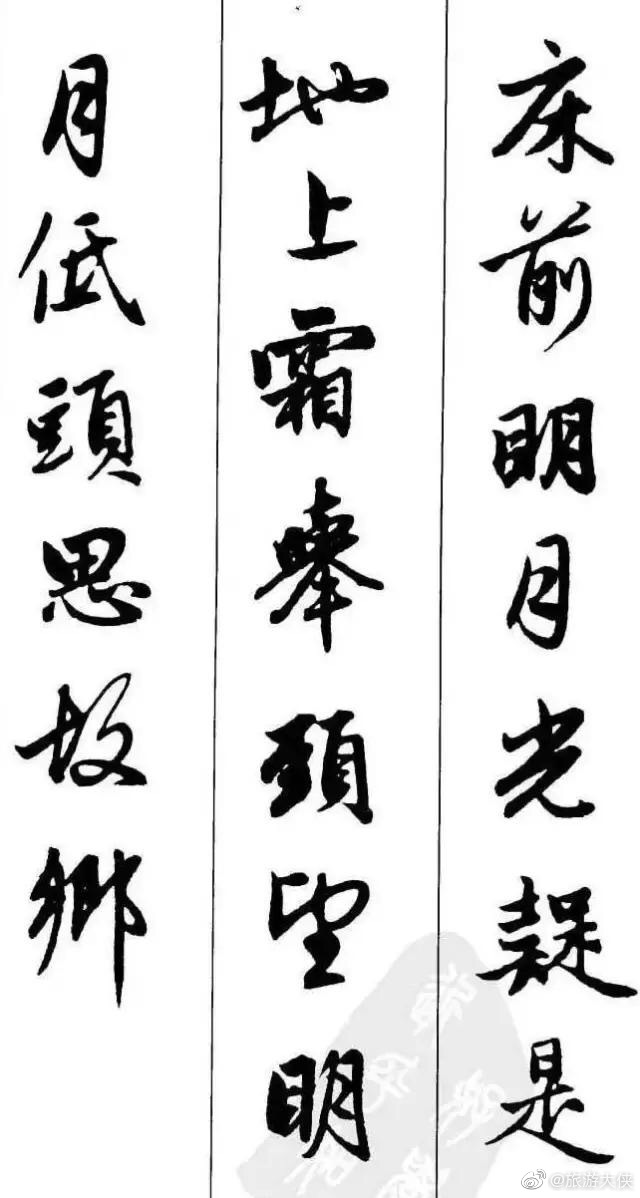 床前明月光疑是
地上霜舉頭望明
月低頭思故鄉
@旅游大侠